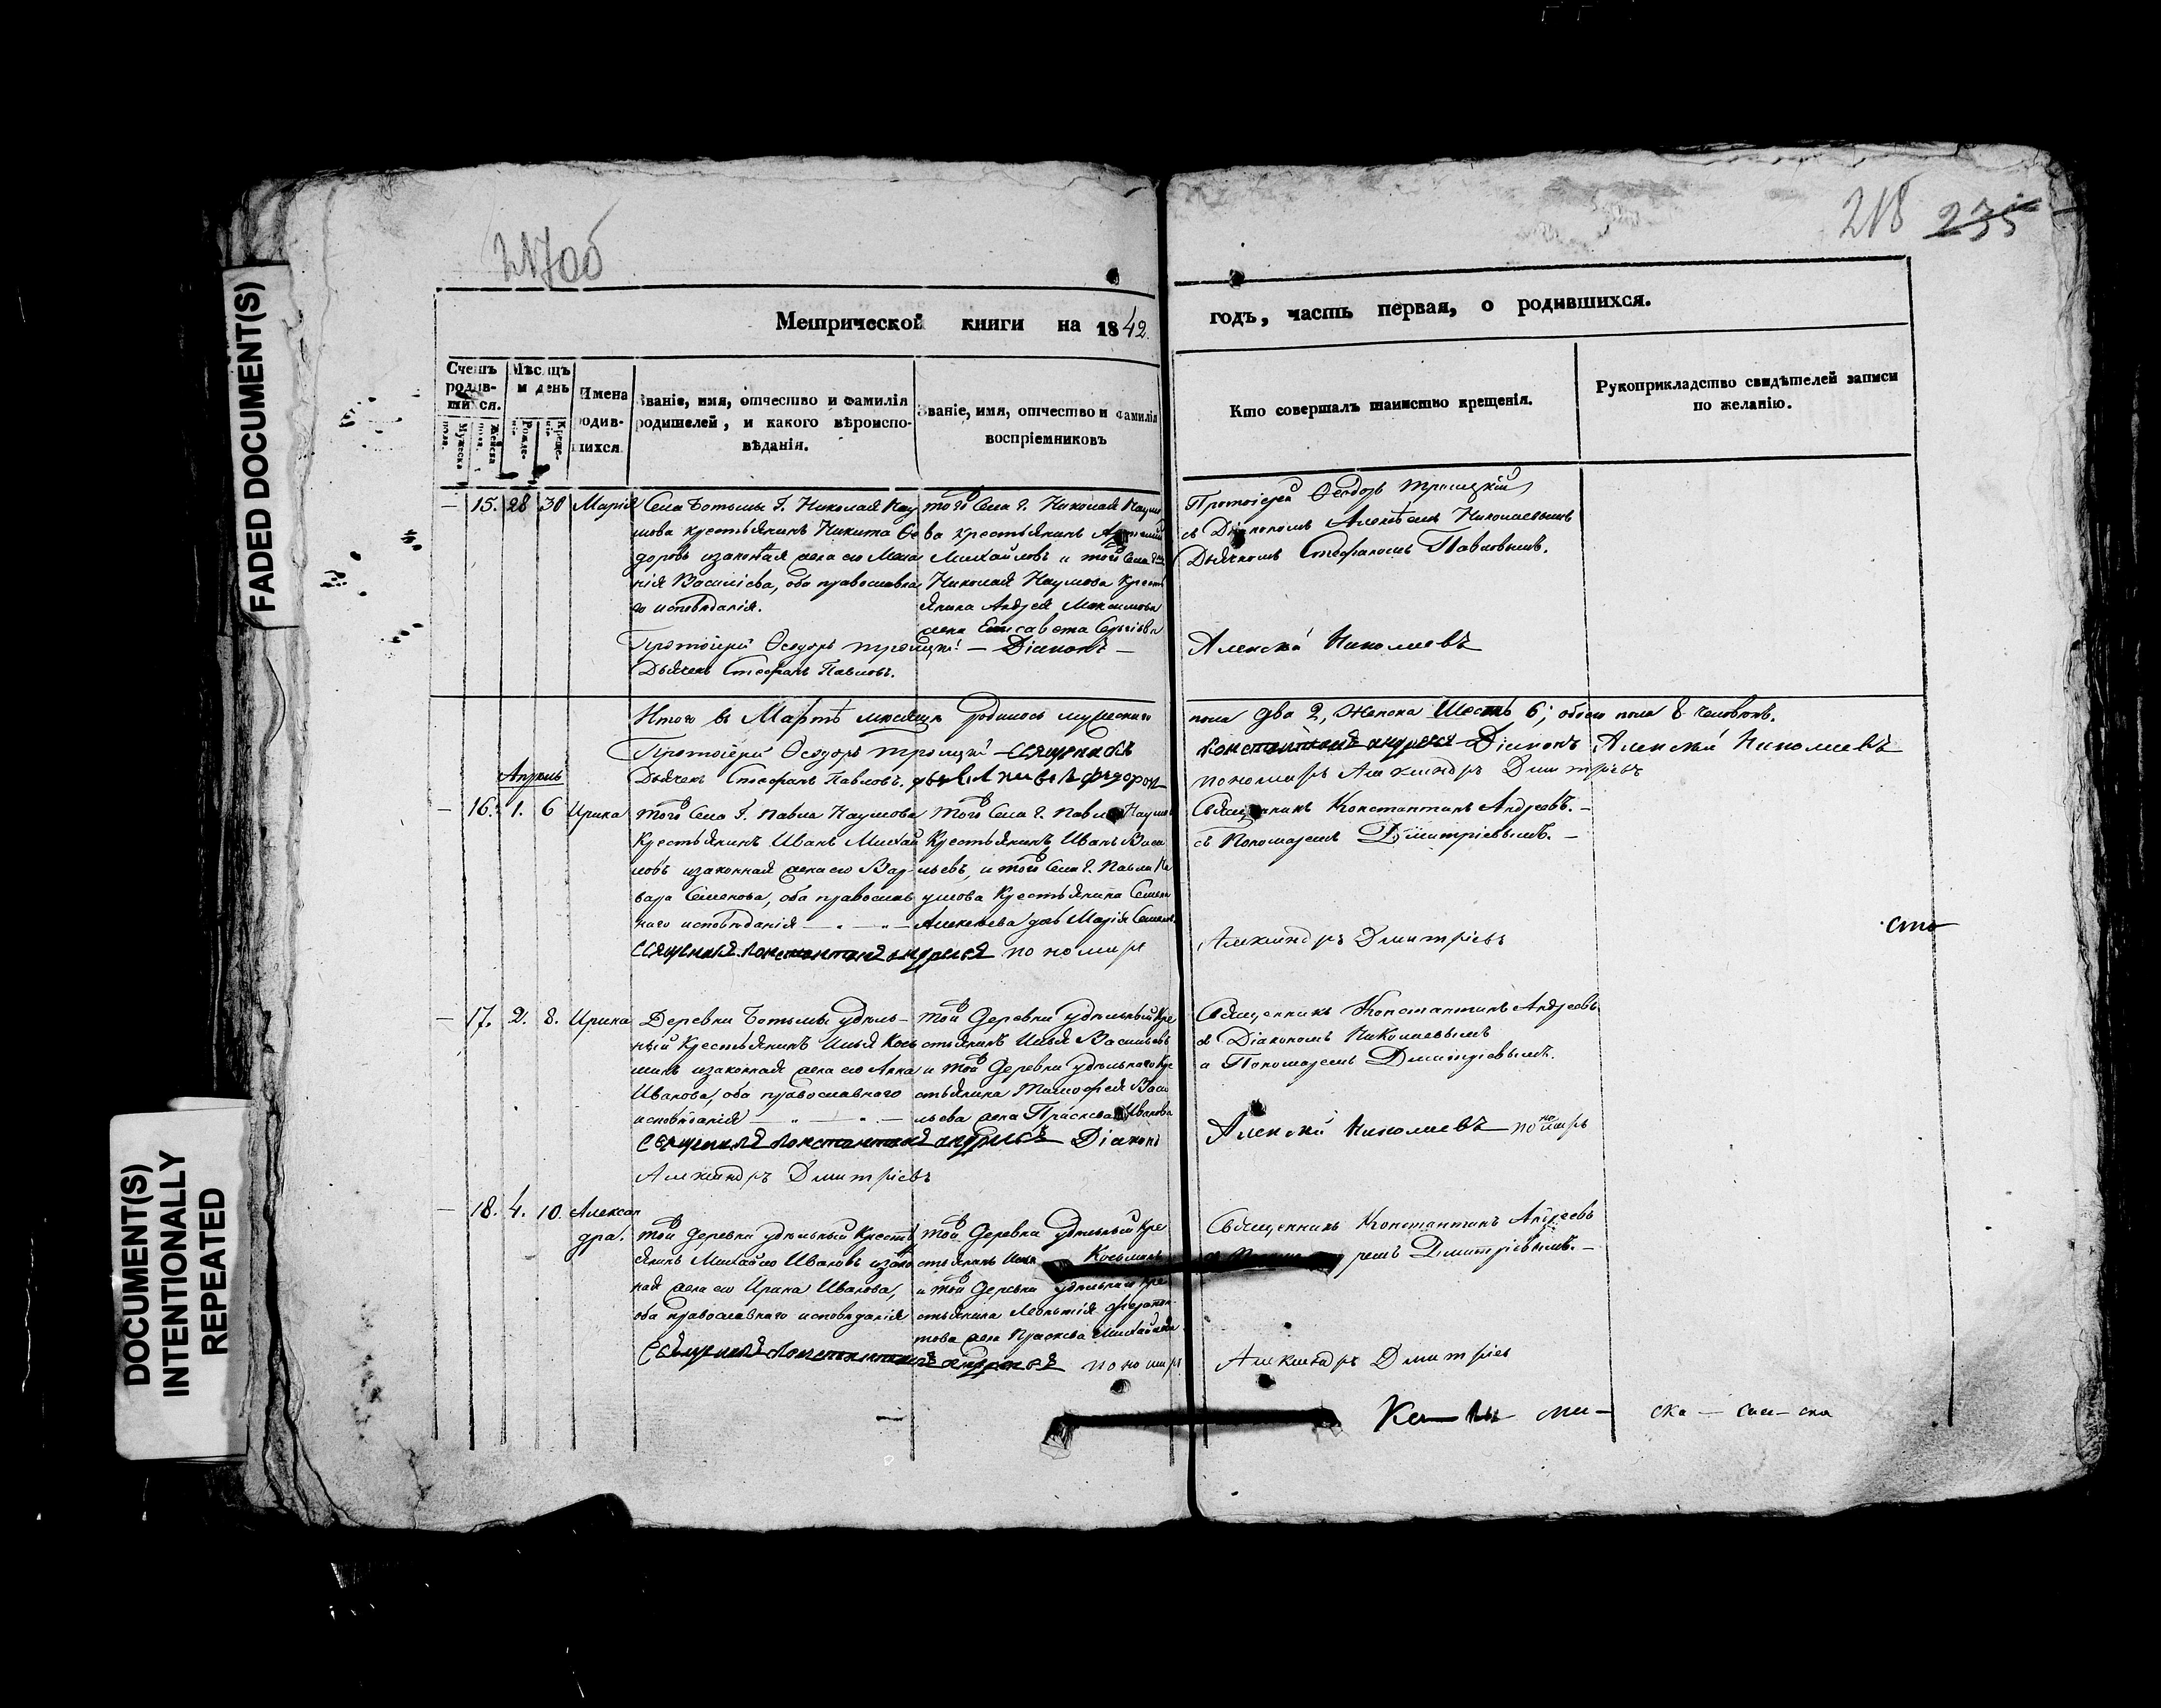 FADED DOCUMENT(S)
DOCUMENT(S)
INTENTIONALLY
REPEATED
217об
218 235
Метрической книги на 1842.
годъ, часть первая, о родившихся.
Счетъ родив-шихся.
Мужеска пола.
Женска пола.
Мѣсяцъ и день
Рожде-нія
Креще-нія
Имена родив-шихся
Званіе, имя, отчество и фамилія родителей, и какого вѣроиспо-вѣданія.
Званіе, имя, отчество и фамилія воспріемниковъ
Кто совершалъ таинство крещенія.
Рукоприкладство свидѣтелей записи по желанію.
15. 28 30 Марія
Села Ботьмы Г. Николая Нау
мова крестьянинъ Никита Ѳе
доровъ и законная жена его Мела
нія Васильева, оба православна
го исповѣданія.
того Села Г. Николая Наумо
ва крестьянинъ
Михайловъ и того Села Г.
Николая Наумова Кресть
янина Андрея Максимова
жена Елисавета
Протоіерей Ѳеодоръ Троицкій
съ Діакономъ Алексѣемъ Николаевымъ
Дьячкомъ Стефаномъ Павловымъ.
Протоіерей Ѳеодоръ Троицкій — Діаконъ —
Алексѣй Николаевъ
Дьячекъ Стефанъ Павловъ.
Итого въ Мартѣ мѣсяцѣ родилось мужескаго
пола два 2, Женска Шесть 6; обоего пола 8 человѣкъ.
Протоіерей Ѳеодоръ Троицкій Священникъ
Константинъ Андреевъ Діаконъ Алексѣй Николаевъ
Дьячекъ Стефанъ Павловъ.
пономарь Александръ Дмитріевъ
Апрѣль
16. 1. 6 Ирина
того Села Г. Павла Наумова
Крестьянинъ Иванъ Михай
ловъ и законная жена его Вар
вара Семенова, оба православ
наго исповѣданія
того Села Г. Павла Наумо
Крестьянинъ Иванъ Васи
льевъ, и того Села Г. Павла На
умова Крестьянина Семена
Алексѣева дочь Марія
Священникъ Константинъ Андреевъ.
съ Пономаремъ Дмитріевымъ.
Священникъ Константинъ Андреевъ пономарь
Александръ Дмитріевъ
17. 2. 8. Ирина
Деревни Ботьмы удѣль-
ный Крестьянинъ Илья Кось
минъ и законная жена его Анна
Иванова, оба православнаго
исповѣданія
той Деревни удѣльный Кре
стьянинъ Илья Васильевъ
и той Деревни удѣльнаго Кре
стьянина Тимофея Васи
льева жена Прасковья Иванова
Священникъ Константинъ Андреевъ
съ Діакономъ Николаевымъ
и Пономаремъ Дмитріевымъ.
Священникъ Константинъ Андреевъ Діаконъ
Алексѣй Николаевъ пономарь
Александръ Дмитріевъ
18. 4. 10. Алексан
дра.
той Деревни удѣльный Кресть
янинъ Михайло Ивановъ и закон
ная жена его Ирина Иванова,
оба православнаго исповѣданія
той Деревни удѣльный Кре
стьянинъ Илья Косьминъ
и той Деревни удѣльнаго Кре
стьянина Леонтія Ферапон
това жена Прасковья Михайлова
Священникъ Константинъ Андреевъ
ремъ Дмитріевымъ.
Священникъ Константинъ Андреевъ пономарь
Александръ Дмитріев